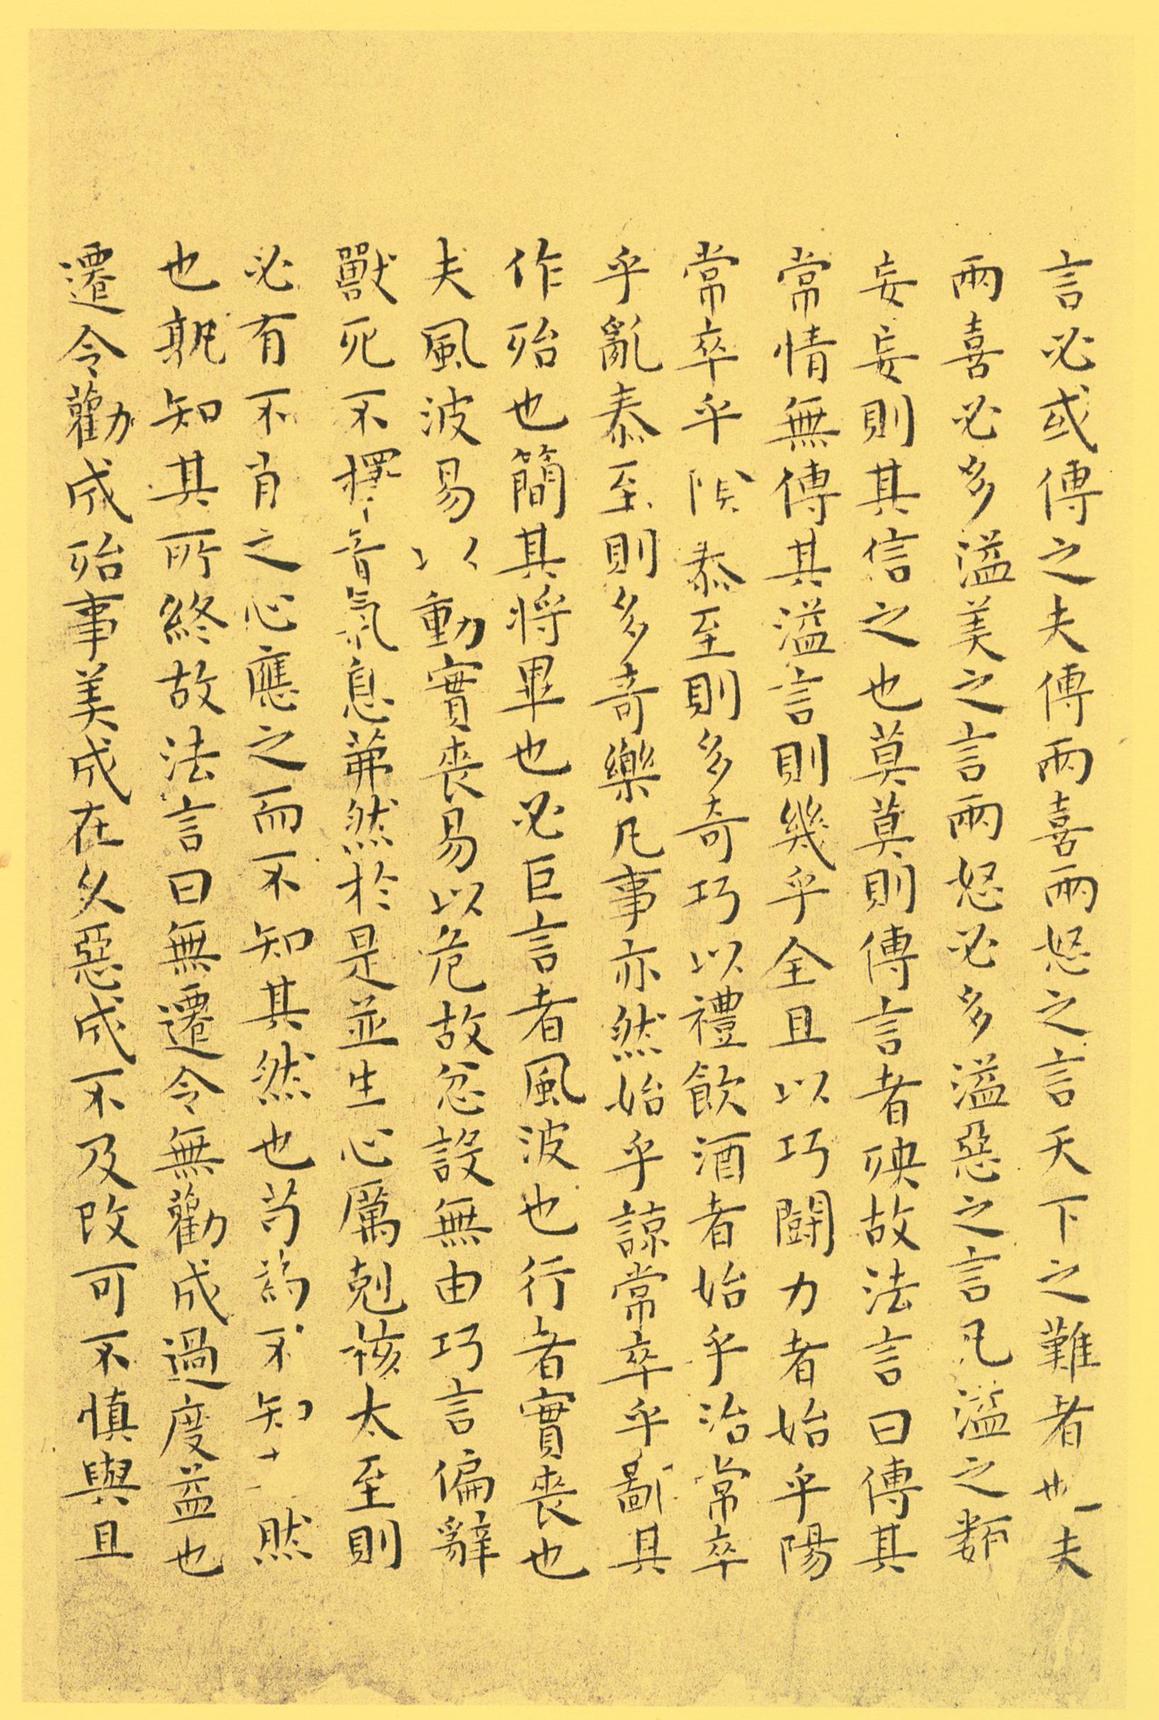 言必或傳之夫傳兩喜兩怒之言天下之難者也夫
兩喜必多溢美之言兩怒必多溢惡之言凡溢之類
妄妄則其信之也莫莫則傳言者殃故法言曰傳其
常情無傳其溢言則幾乎全且以巧鬪力者始乎陽
常卒乎陰泰至則多奇巧以禮飲酒者始乎治常卒
乎亂泰至則多奇樂凡事亦然始乎諒常卒乎鄙其
作殆也簡其將畢也必巨言者風波也行者實喪也
夫風波易以動實喪易以危故忿設無由巧言偏辭
獸死不擇音氣息茀然於是並生心厲剋核太至則
必有不肖之心應之而不知其然也苟為不知其然
也孰知其所終故法言曰無遷令無勸成過度益也
遷令勸成殆事美成在久惡成不及改可不慎與且